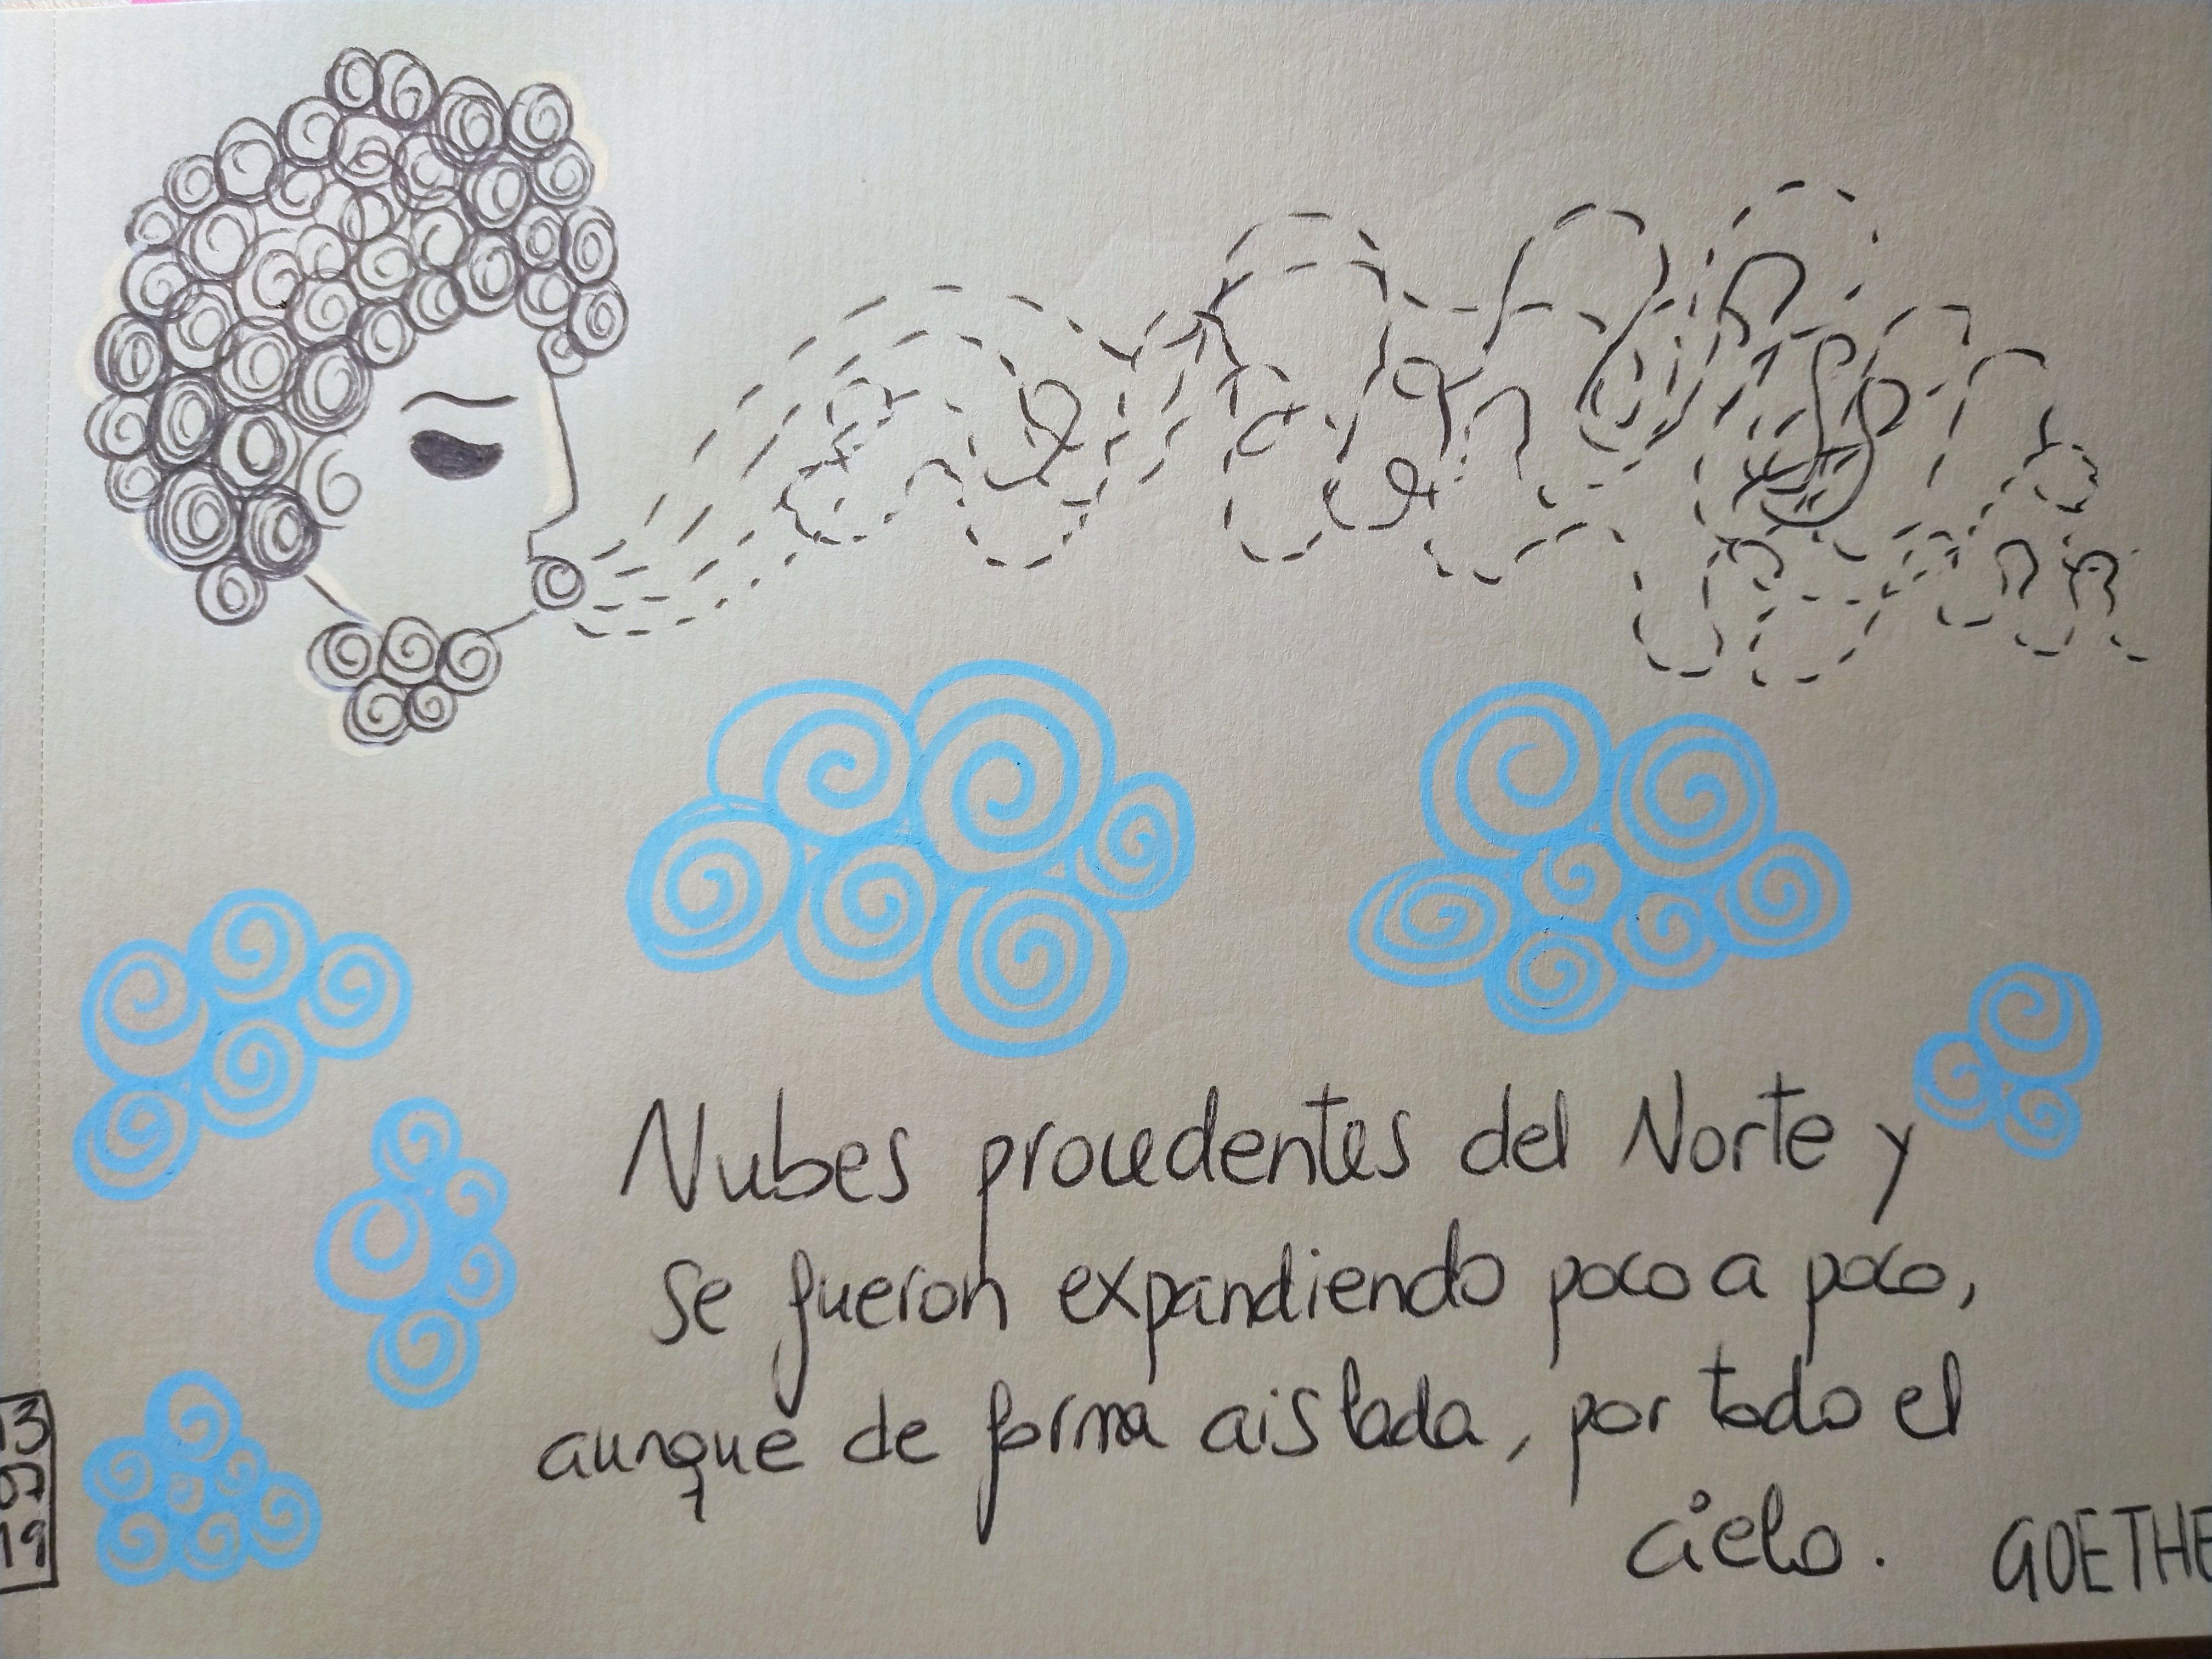 Nubes procedentes del Norte y
se fueron expandiendo poco a poco,
aunque de forma aislada, por todo el
cielo. GOETHE
13
07
19